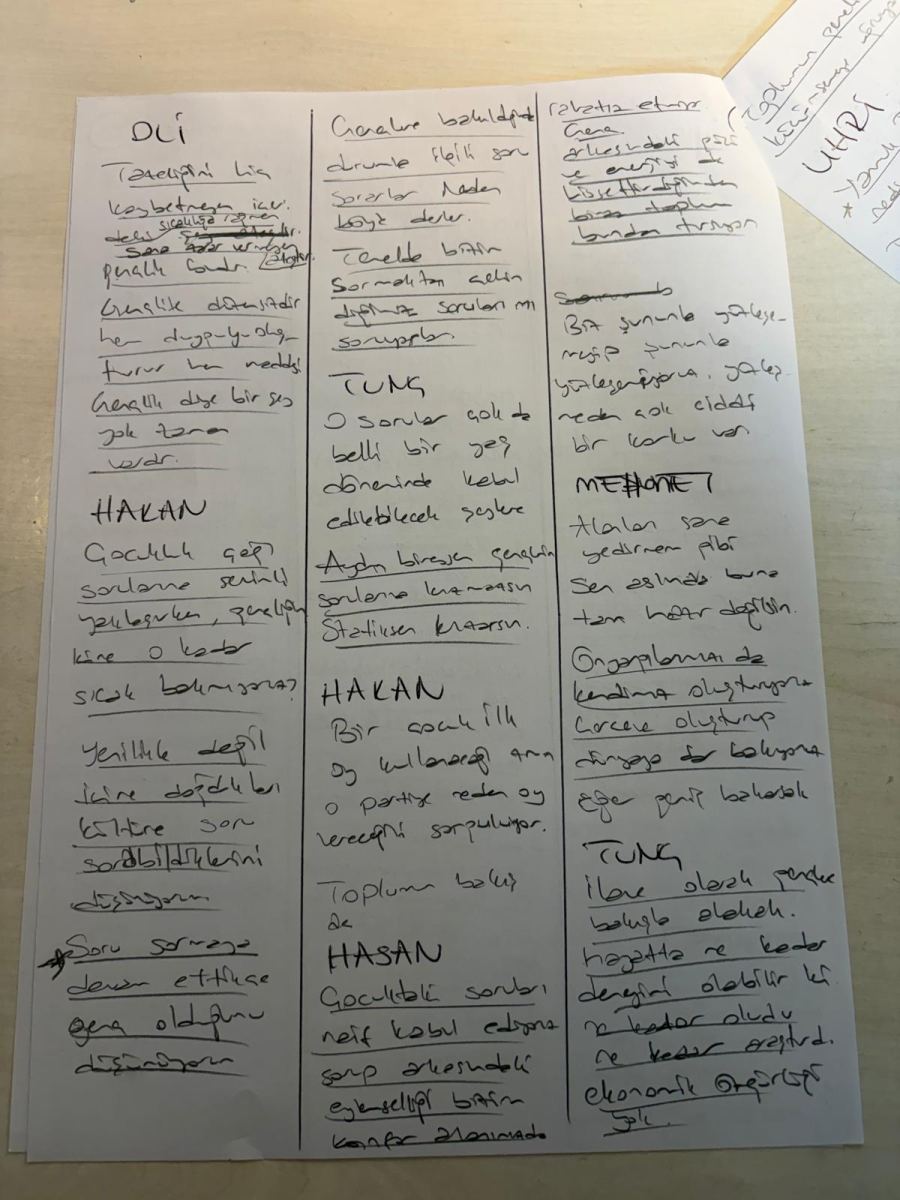 DLİ
Tazeliğini hiç
kaybetmeyen içer.
deki sıcaklığa rağmen
sana zarar vermeyen
gençlik budur.
Gençlik düzensizdir
hem duyguyu oluş-
turur hem maddeyi
Gençlik diye bir şey
yok zaman
vardır.
HAKAN
Çocukluk çağı
sorularına sevimli
yaklaşırken, gençliğin
kine o kadar
sıcak bakmıyoruz?
Yenilikle değil
içine doğdukları
kültüre soru
sorabildiklerini
düşünüyorum
Soru sormaya
devam ettikçe
genç olduğunu
düşünüyorum
Gençlere bakıldığında
durumla ilgili soru
sorarlar Neden
böyle derler.
Genelde bizim
sormaktan çekin
diğimiz soruları mı
soruyorlar.
TUNÇ
O sorular çok da
belli bir yaş
döneminde kabul
edilebilecek şeylere
Aydın bireysen gençlerin
sorularına kızmazsın
Statiksen kızarsın.
HAKAN
Bir çocuk ilk
oy kullanacağı ama
o partiye neden oy
vereceğini sorguluyor.
Toplumun bakış
da
HASAN
Çocuktaki soruları
naif kabul ediyoruz
genç arkasındaki
eylemselliği bizim
konfor alanımızda
rahatız etmiyor
Genç
arkasındaki gücü
ve enerjiyi de
hissettirdiğinden
biraz toplum
bundan tırsıyor
Biz şununla yüzleşe-
meyip şununla
yüzleşemiyoruz. yüzleş-
meden çok ciddi
bir korku var
MEHMET
Alanları sana
yedirmem gibi
Sen aslında buna
tam hazır değilsin.
Önyargılarımızı da
kendimiz oluşturuyoruz
Çerçeve oluşturup
dünyaya dar bakıyoruz
Eğer geniş bakarsak
TUNÇ
İlave olarak gençlere
bakışla alakalı.
hayatta ne kadar
deneyimi olabilir ki
ne kadar okudu
ne kadar araştırdı.
ekonomik özgürlüğü
yok.
Toplumun
UHRİ